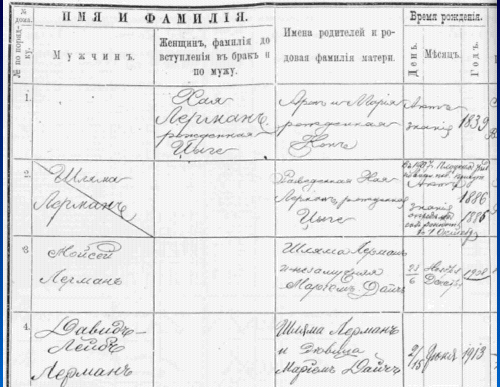 № дома.
№ по порядку.
ИМЯ И ФАМИЛІЯ.
Мужчинъ.
Женщинъ, фамилія до
вступленія въ бракъ и
по мужу.
Имена родителей и ро-
довая фамилія матери.
Время рожденія.
День.
Мѣсяцъ.
Годъ.
1.
Хая
Лерманъ
рожденная
Цыге
и Марія
рожденная
Конъ
Актъ
знанія
1839
2.
Шляма
Лерманъ
Хая
Лерманъ рожденная
Цыге
знанія
1886
3.
Мойсей
Лерманъ
Шляма Лерманъ
и незамужняя
Маріемъ Дайчъ
23/6
1908
4.
Давидъ-
Лейбъ
Лерманъ
Шляма Лерманъ
и дѣвица
Маріемъ Дайчъ
2/15
Іюня
1913